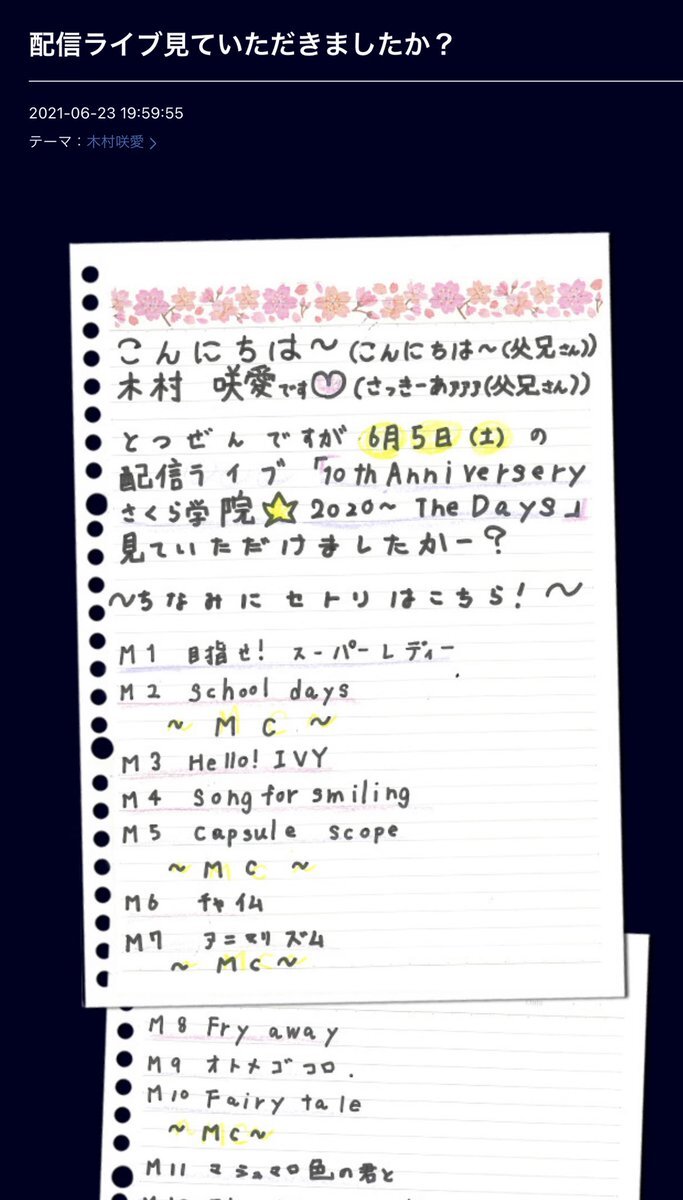 配信ライブ見ていただきましたか？
2021-06-23 19:59:55
テーマ：木村咲愛
こんにちは〜(こんにちは〜(父兄さん))
木村 咲愛です♡(さっきーあァァァ(父兄さん))
とつぜんですが 6月5日(土)の
配信ライブ「10th Anniversery
さくら学院☆2020〜 The Days」
見ていただけましたかー？
〜ちなみに セトリはこちら！〜
M1 目指せ！ スーパーレディー
M2 School days
〜 MC 〜
M3 Hello! IVY
M4 Song for smiling
M5 capsule scope
〜 MC 〜
M6 チャイム
M7 アニマリズム
〜 MC〜
M8 Fry away
M9 オトメゴコロ.
M10 Fairy tale
〜 MC〜
M11 マシュマロ色の君と